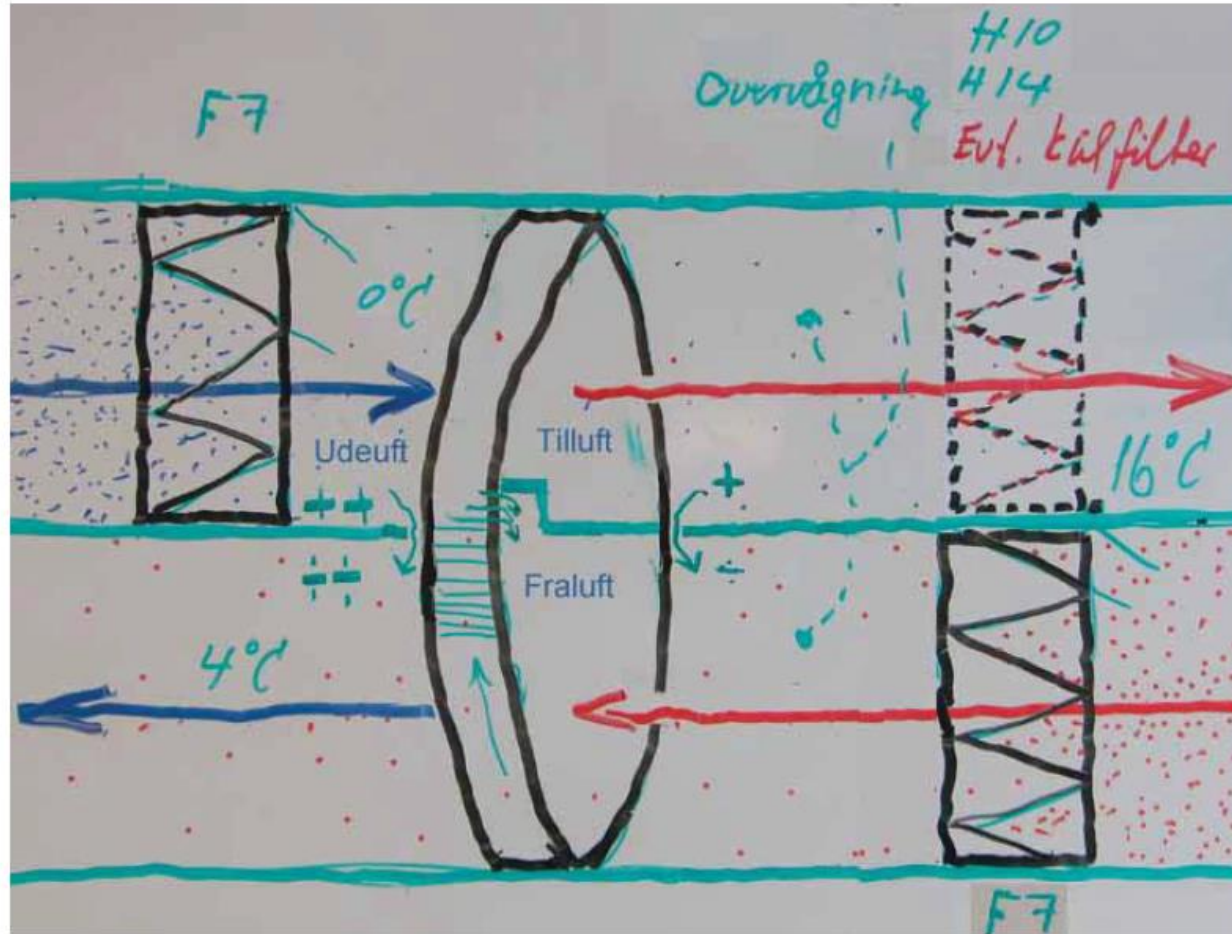 F7
H10
Overvågning H14
Evt. kulfilter
0°C
Udeuft
Tilluft
++
+
16°C
++
Fraluft
-
4°C
F7